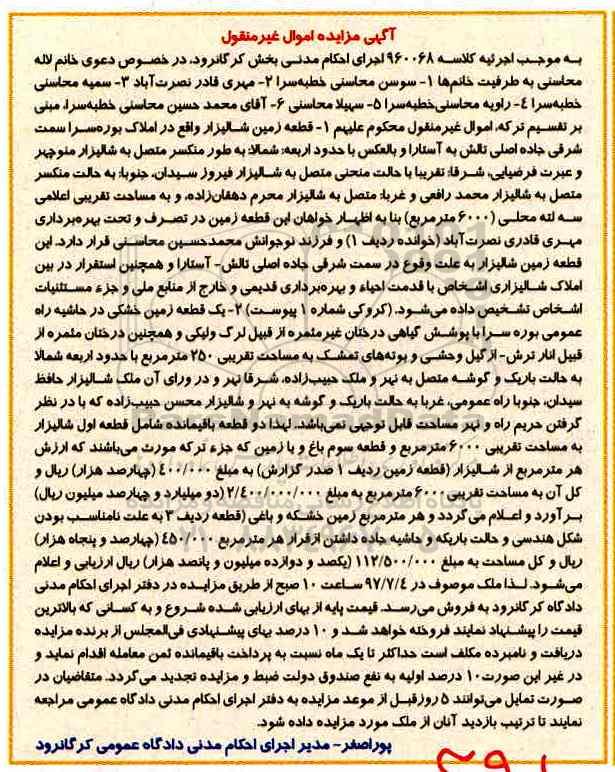 آگهی مزایده اموال غیرمنقول
به موجب اجرئیه کلاسه ۹۶۰۰۶۸ اجرای احکام مدنی بخش کرگانرود، در خصوص دعوی خانم لاله
محاسنی به طرفیت خانم‌ها ۱- سوسن محاسنی خطبه‌سرا ۲- مهری قادر نصرت‌آباد ۳- سمیه محاسنی
خطبه‌سرا ۴- راویه محاسنی‌خطبه‌سرا ۵- سهیلا محاسنی ۶- آقای محمد حسین محاسنی خطبه‌سرا، مبنی
بر تقسیم ترکه، اموال غیرمنقول محکوم علیهم ۱- قطعه زمین شالیزار واقع در املاک بوره‌سرا سمت
شرقی جاده اصلی تالش به آستارا و بالعکس با حدود اربعه: شمالا: به طور منکسر متصل به شالیزار منوچهر
و عبرت فرضیایی، شرقا: تقریبا با حالت منحنی متصل به شالیزار فیروز سیدان، جنوبا: به حالت منکسر
متصل به شالیزار محمد رافعی و غربا: متصل به شالیزار محرم دهقان‌زاده، و به مساحت تقریبی اعلامی
سه لته محلی (۶۰۰۰ مترمربع) بنا به اظهار خواهان این قطعه زمین در تصرف و تحت بهره‌برداری
مهری قادری نصرت‌آباد (خوانده ردیف ۱) و فرزند نوجوانش محمدحسین محاسنی قرار دارد. این
قطعه زمین شالیزار به علت وقوع در سمت شرقی جاده اصلی تالش- آستارا و همچنین استقرار در بین
املاک شالیزاری اشخاص با قدمت احیاء و بهره‌برداری قدیمی و خارج از منابع ملی و جزء مستثنیات
اشخاص تشخیص داده می‌شود. (کروکی شماره ۱ پیوست) ۲- یک قطعه زمین خشکی در حاشیه راه
عمومی بوره سرا با پوشش گیاهی درختان غیرمثمره از قبیل لرگ ولیکی و همچنین درختان مثمره از
قبیل انار ترش- ازگیل وحشی و بوته‌های تمشک به مساحت تقریبی ۲۵۰ مترمربع با حدود اربعه شمالا
به حالت باریک و گوشه متصل به نهر و ملک حبیب‌زاده، شرقا نهر و در ورای آن ملک شالیزار حافظ
سیدان، جنوبا راه عمومی، غربا به حالت باریک و گوشه به نهر و شالیزار محسن حبیب‌زاده که با در نظر
گرفتن حریم راه و نهر مساحت قابل توجهی نمی‌باشد. لهذا دو قطعه باقیمانده شامل قطعه اول شالیزار
به مساحت تقریبی ۶۰۰۰ مترمربع و قطعه سوم باغ و یا زمین که جزء ترکه مورث می‌باشند که ارزش
هر مترمربع از شالیزار (قطعه زمین ردیف ۱ صدر گزارش) به مبلغ ۴۰۰/۰۰۰ (چهارصد هزار) ریال و
کل آن به مساحت تقریبی ۶۰۰۰ مترمربع به مبلغ ۲/۴۰۰/۰۰۰/۰۰۰ (دو میلیارد و چهارصد میلیون ریال)
برآورد و اعلام می‌گردد و هر مترمربع زمین خشکه و باغی (قطعه ردیف ۳ به علت نامناسب بودن
شکل هندسی و حالت باریکه و حاشیه جاده داشتن ازقرار هر مترمربع ۴۵۰/۰۰۰ (چهارصد و پنجاه هزار)
ریال و کل مساحت به مبلغ ۱۱۲/۵۰۰/۰۰۰ (یکصد و دوازده میلیون و پانصد هزار) ریال ارزیابی و اعلام
می‌شود. لذا ملک موصوف در ۹۷/۷/۴ ساعت ۱۰ صبح از طریق مزایده در دفتر اجرای احکام مدنی
دادگاه کرگانرود به فروش می‌رسد. قیمت پایه از بهای ارزیابی شده شروع و به کسانی که بالاترین
قیمت را پیشنهاد نمایند فروخته خواهد شد و ۱۰ درصد بهای پیشنهادی فی‌المجلس از برنده مزایده
دریافت و نامبرده مکلف است حداکثر تا یک ماه نسبت به پرداخت باقیمانده ثمن معامله اقدام نماید و
در غیر این صورت۱۰ درصد اولیه به نفع صندوق دولت ضبط و مزایده تجدید می‌گردد. متقاضیان در
صورت تمایل می‌توانند ۵ روزقبل از موعد مزایده به دفتر اجرای احکام مدنی دادگاه عمومی مراجعه
نمایند تا ترتیب بازدید آنان از ملک مورد مزایده داده شود.
پوراصغر- مدیر اجرای احکام مدنی دادگاه عمومی کرگانرود